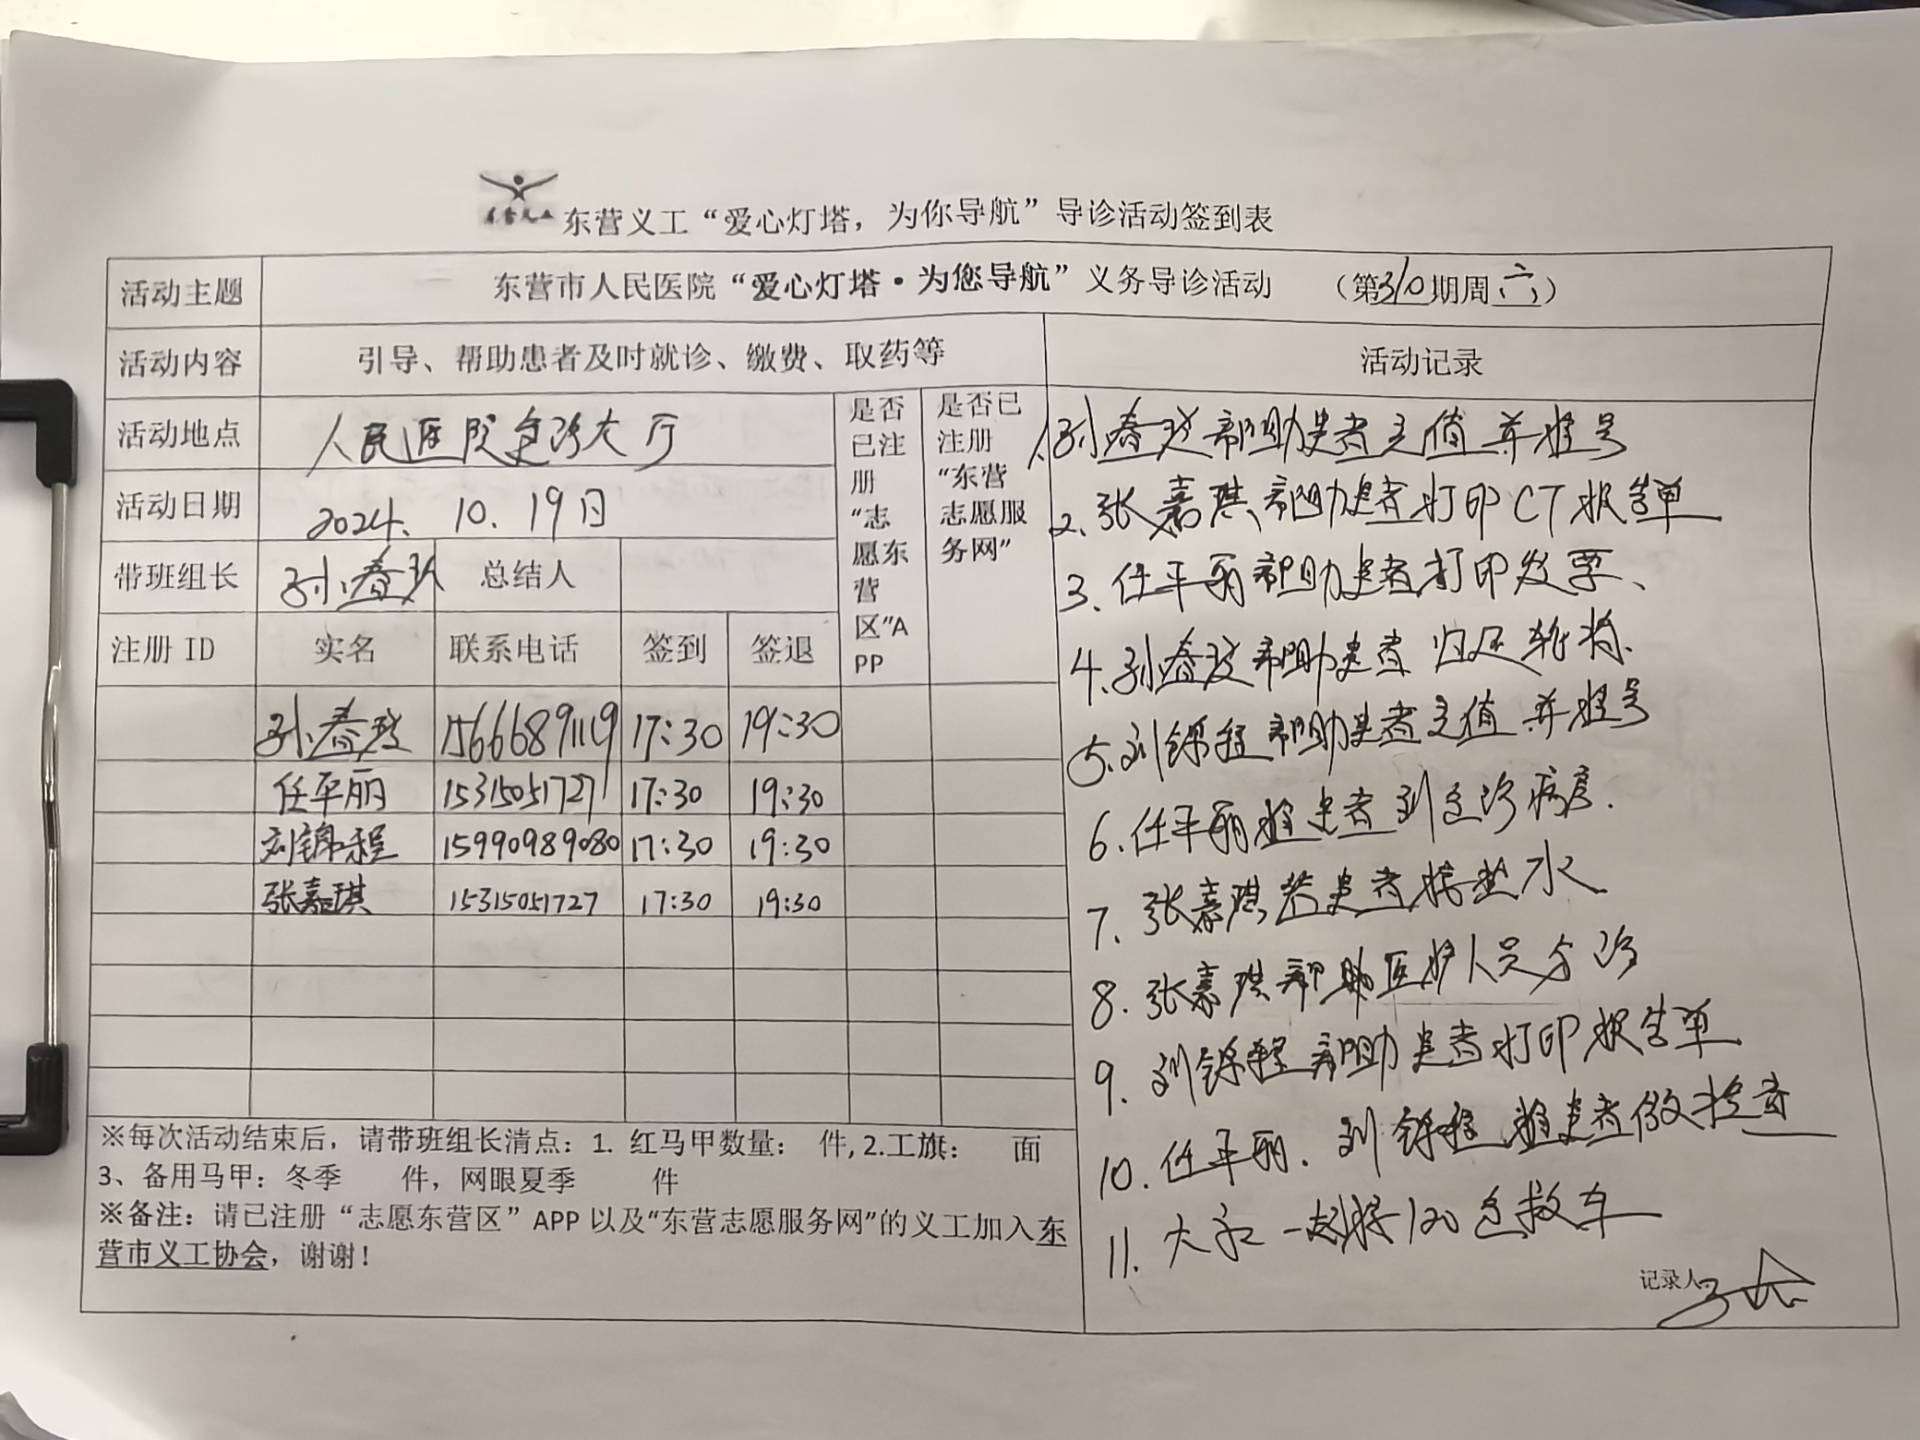 东营义工
东营义工“爱心灯塔，为你导航”导诊活动签到表
活动主题 东营市人民医院“爱心灯塔·为您导航”义务导诊活动 （第310期周六）
活动内容 引导、帮助患者及时就诊、缴费、取药等 活动记录
活动地点 人民医院急诊大厅
活动日期 2024.10.19日
带班组长 孙春玫 总结人
注册ID 实名 联系电话 签到 签退
是否
已注
册
“志
愿东
营
区”A
PP
是否已
注册
“东营
志愿服
务网”
孙春玫 15666891119 17:30 19:30
任平丽 15315051727 17:30 19:30
刘锦程 15990989080 17:30 19:30
张嘉琪 15315051727 17:30 19:30
1.孙春玫帮助患者充值并挂号
2.张嘉琪帮助患者打印CT报告单
3.任平丽帮助患者打印发票、
4.孙春玫帮助患者归还轮椅.
5.刘锦程帮助患者充值并挂号
6.任平丽推患者到急诊病房.
7.张嘉琪给患者接热水
8.张嘉琪帮助医护人员分诊
9.刘锦程帮助患者打印报告单
10.任平丽.刘锦程推患者做检查
11.大家一起接120急救车
记录人
※每次活动结束后，请带班组长清点：1. 红马甲数量： 件,2.工旗： 面
3、备用马甲：冬季 件，网眼夏季 件
※备注：请已注册“志愿东营区”APP以及“东营志愿服务网”的义工加入东
营市义工协会，谢谢！